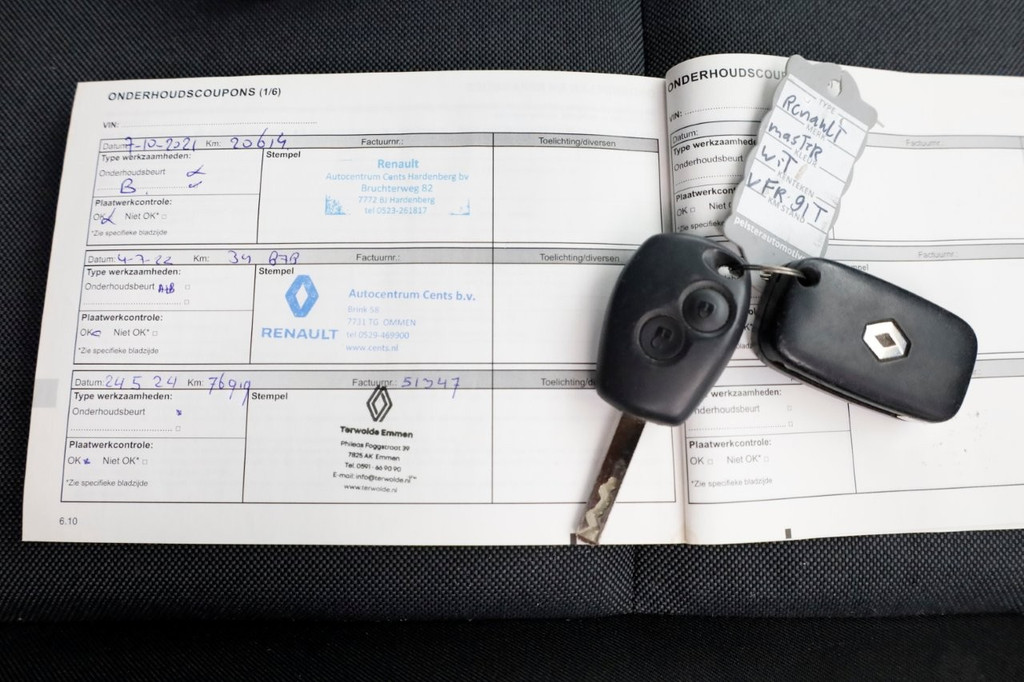 ONDERHOUDSCOUPONS (1/6)
VIN:
Datum: 7-10-2021 Km: 20614 Factuurnr.: Toelichting/diversen
Type werkzaamheden: Stempel
Onderhoudsbeurt
B.
Plaatwerkcontrole:
OK Niet OK*
*Zie specifieke bladzijde
Renault
Autocentrum Cents Hardenberg bv
Bruchterweg 82
7772 BJ Hardenberg
tel 0523-261817
Datum: 4-7-22 Km: Factuurnr.: Toelichting/diversen
Type werkzaamheden: Stempel
Onderhoudsbeurt A+B
Plaatwerkcontrole:
OK Niet OK*
*Zie specifieke bladzijde
RENAULT
Autocentrum Cents b.v.
Brink 58
7731 TG OMMEN
tel 0529-469900
www.cents.nl
Datum: 24 5 24 Km: Factuurnr.: 51347 Toelichting/
Type werkzaamheden: Stempel
Onderhoudsbeurt
Plaatwerkcontrole:
OK Niet OK*
*Zie specifieke bladzijde
Terwolde Emmen
Phileas Foggstraat 39
7825 AK Emmen
Tel. 0591 - 66 90 90
E-mail: info@terwolde.nl
www.terwolde.nl
6.10
ONDERHOUDSCOU
VIN:
Datum: Factuurnr.:
Type werkzaam
Onderhoudsbeurt
Plaatwerkcont
OK Niet
*Zie specifieke
Factuurnr.:
nderhoudsbeurt
Plaatwerkcontrole:
OK Niet OK*
*Zie specifieke bladzijde
TYPE
Renault
MERK
master
KLEUR
wit
KENTEKEN
VFR-91T
KM STAND
pelsterautomotive